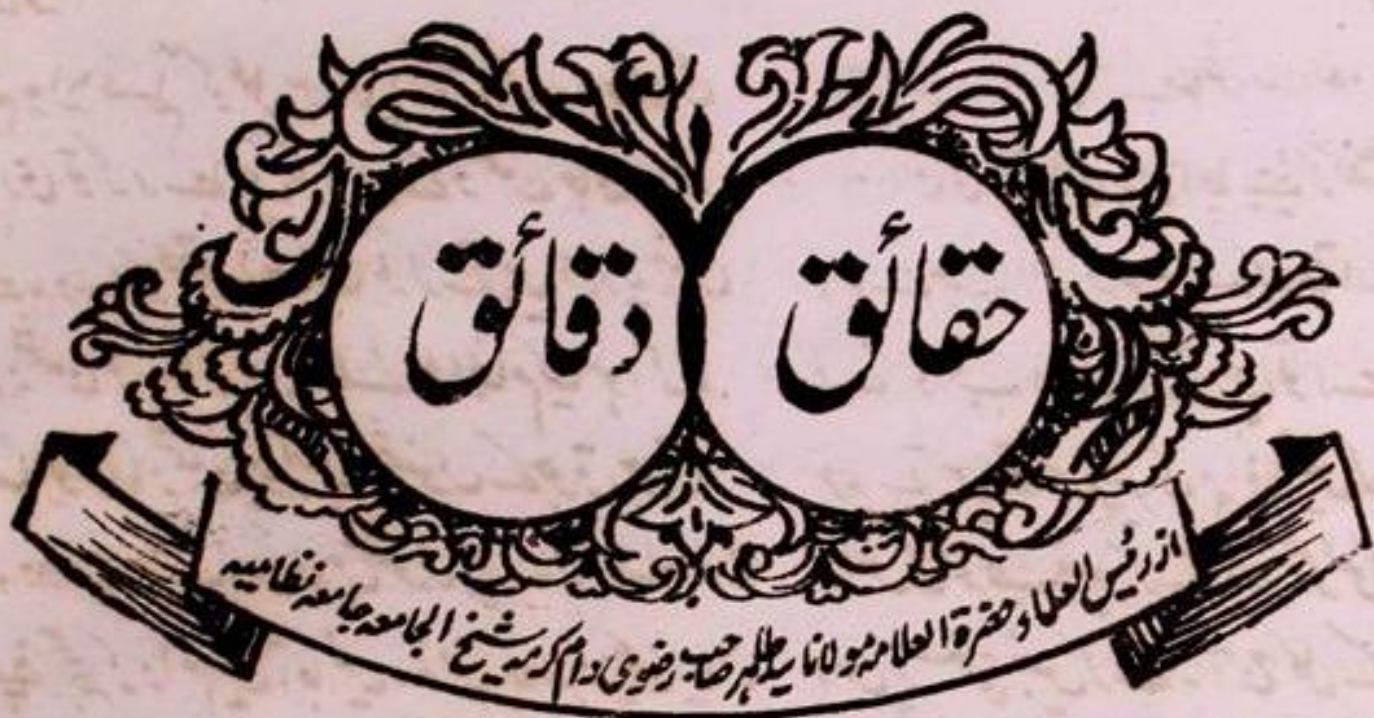 حقائق
دقائق
از رئیس العلماء حضرة العلامہ مولانا سید طاہر صاحب رضوی دام کرمہ شیخ الجامعہ جامعہ نظامیہ